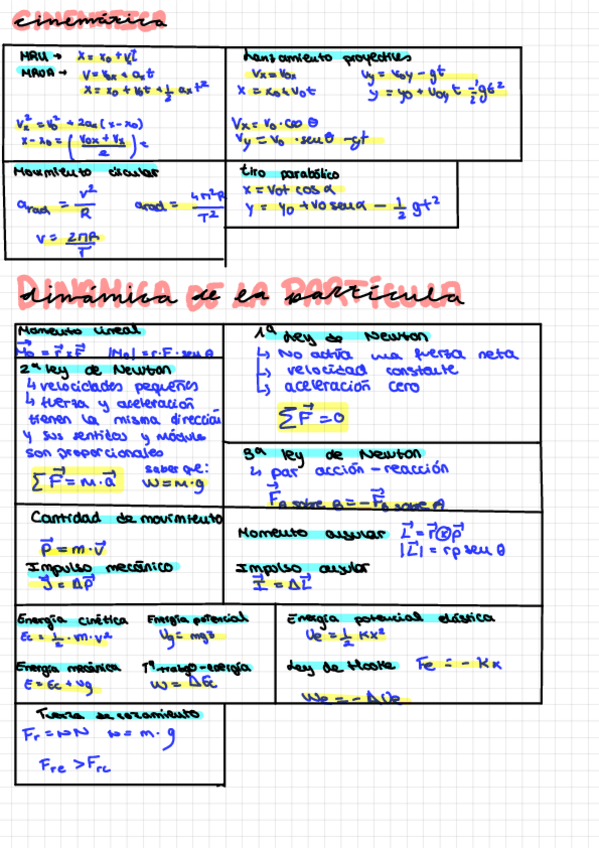 cinemática
MRU → x = x₀ + vₓt
MRUA → v = v₀ₓ + aₓt
x = x₀ + v₀t + 1/2 aₓt²
vₓ² = v₀² + 2aₓ(x - x₀)
x - x₀ = (v₀ₓ + vₓ / 2)t
Lanzamiento proyectiles
vₓ = v₀ₓ vy = v₀y - gt
x = x₀ + v₀t y = y₀ + v₀y t - 1/2 gt²
vₓ = v₀ · cos θ
vy = v₀ · sen θ - gt
Movimiento circular
a_rad = v²/R a_rad = 4π²R/T²
v = 2πR/T
tiro parabólico
x = v₀t cos α
y = y₀ + v₀ sen α - 1/2 gt²
dinámica de la partícula
Momento lineal
M⃗₀ = r⃗ x F⃗ |M₀| = r · F · sen θ
2ª ley de Newton
↳ velocidades pequeñas
↳ fuerza y aceleración
tienen la misma dirección
y sus sentidos y módulo
son proporcionales
saber que:
∑F⃗ = m · a⃗ w = m · g
1ª Ley de Newton
↳ No actúa una fuerza neta
↳ velocidad constante
↳ aceleración cero
∑F⃗ = 0
3ª ley de Newton
↳ par acción - reacción
F⃗ A sobre B = - F⃗ B sobre A
Cantidad de movimiento
p⃗ = m · v⃗
Impulso mecánico
J⃗ = Δp⃗
Momento angular L⃗ = r⃗ ⊗ p⃗
|L⃗| = rp sen θ
Impulso angular
I⃗ = ΔL⃗
Energía cinética Energía potencial
Ec = 1/2 · m · v² Ug = mgz
Energía mecánica Tª trabajo-energía
E = Ec + Ug W = ΔEc
Energía potencial elástica
Ue = 1/2 Kx²
Ley de Hooke Fe = - Kx
We = - ΔUe
Fuerza de rozamiento
Fr = NN N = m · g
Fre > Frc